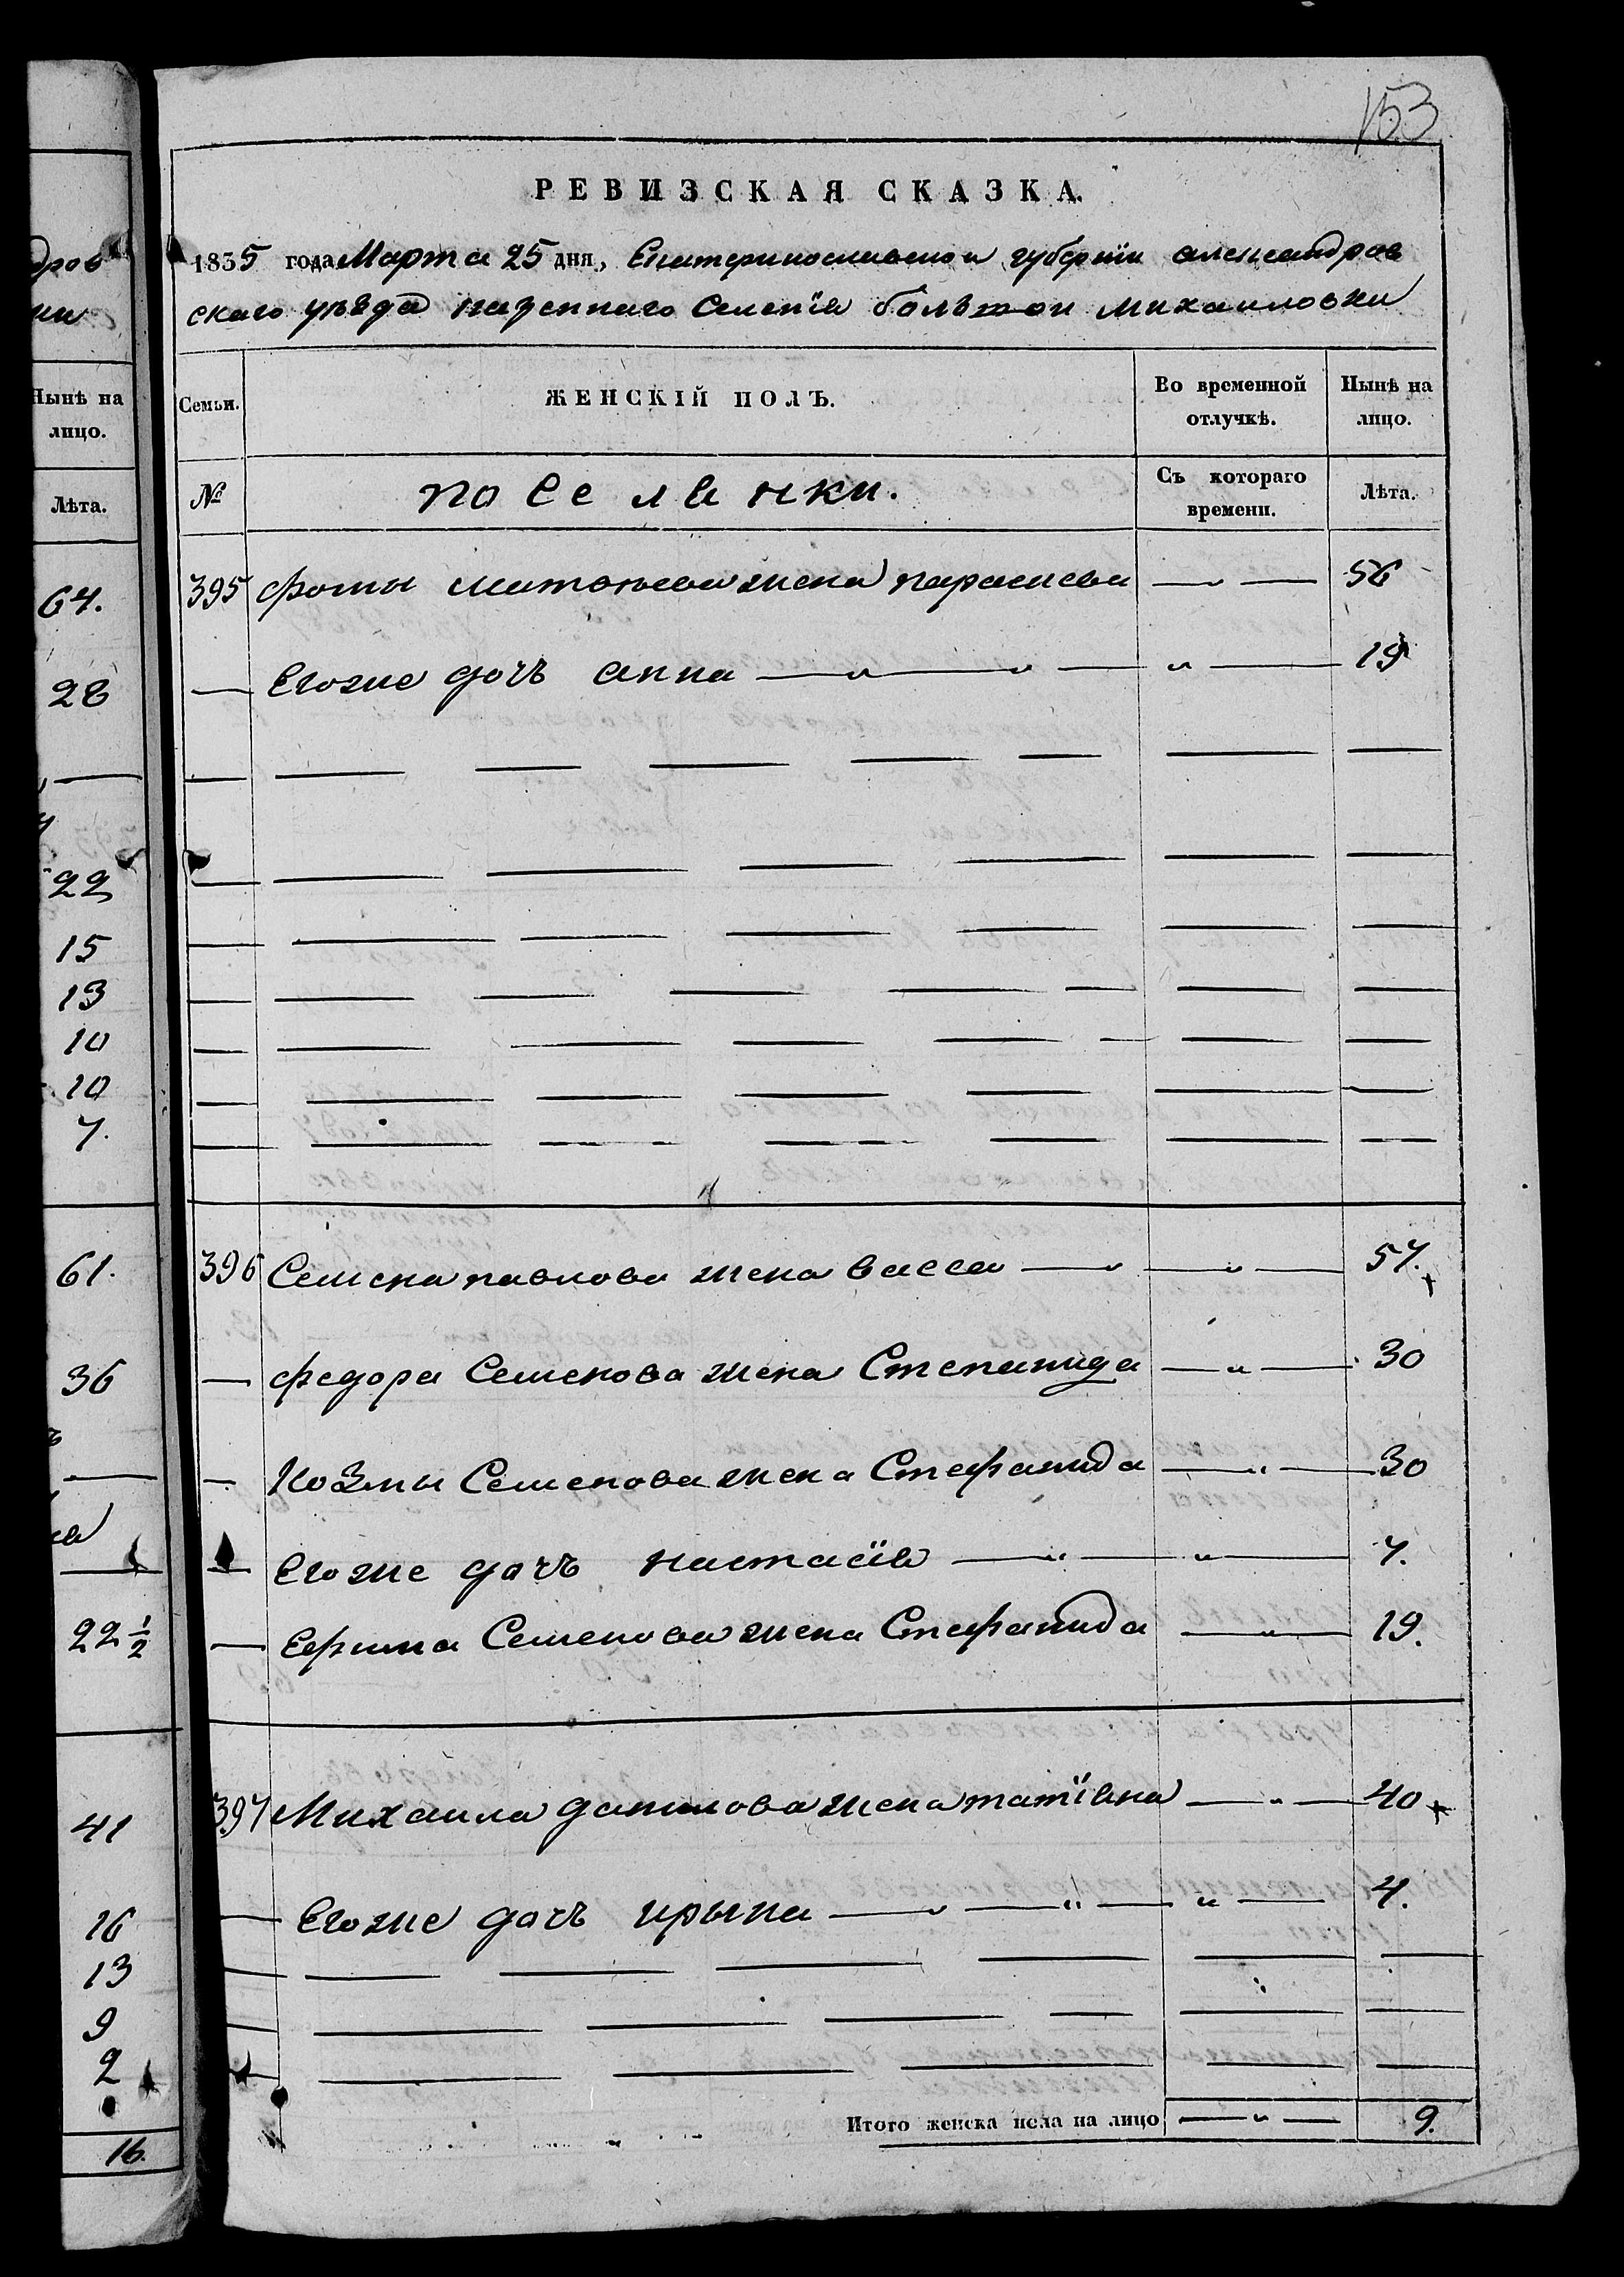 153
РЕВИЗСКАЯ СКАЗКА.
1835 года Марта 25 дня, Екатеринославской губернїи александров
ского уѣзда казенного Селенїя большой михаиловки
Семьи. ЖЕНСКІЙ ПОЛЪ. Во временной отлучкѣ. Нынѣ на лицо.
№ поселянки. Съ котораго времени. Лѣта.
395 фомы матвѣева жена параскева — „ — 56
— Егоже дочъ анна — „ — „ — „ — 19
396 Семена павлова жена васса — „ — „ — 57.
— федора Семенова жена Степанида — „ — 30
— Козмы Семенова жена Стефанида — „ — 30
— Егоже дочъ настасїя — „ — „ — 7.
— Ефима Семенова жена Стефанида — „ — 19.
397 Михаила данилова жена татїана — „ — 40
— Егоже дочъ ирына — „ — „ — „ — 4.
Итого женска пола на лицо — „ — 9.
дров
ки
Нынѣ на
лицо.
Лѣта.
64.
28
22
15
13
10
10
7.
61.
36
22 1/2
41
16
13
9
2
16.